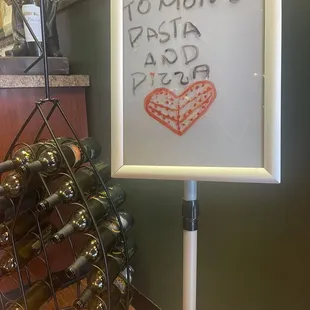 TO MOM'S
PASTA
AND
PIZZA